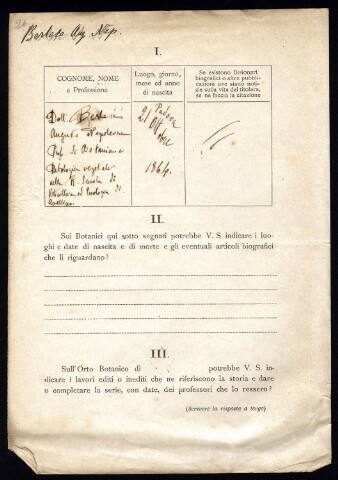 Berlese Aug. Nap.
I.
COGNOME, NOME
e Professione
Luogo, giorno,
mese ed anno
di nascita
Se esistono Dizionari
biografici o altre pubbli-
cazioni ove siano noti-
zie sulla vita del titolare,
se ne faccia la citazione
Dott. Berlese
Augusto Napoleone
Prof. di Botanica e
Patologia vegetale
nella R. Scuola di
Viticoltura ed Enologia di
Avellino
Padova
21 Ottobre
1864.
II.
Sui Botanici qui sotto segnati potrebbe V. S. indicare i luo-
ghi e date di nascita e di morte e gli eventuali articoli biografici
che li riguardano?
III.
Sull'Orto Botanico di potrebbe V. S. in-
dicare i lavori editi o inediti che ne riferiscono la storia e dare
o completare la serie, con date, dei professori che lo ressero?
(Scrivere la risposta a tergo)